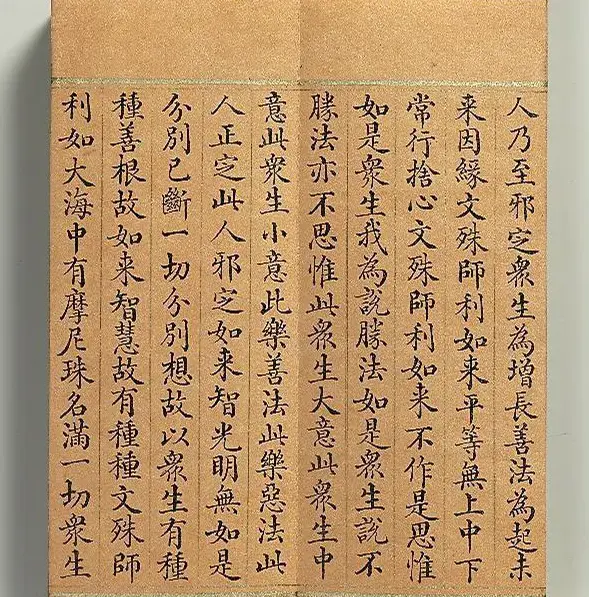 人乃至邪㝎衆生為增長善法為起未
来因緣文殊師利如来平等無上中下
常行捨心文殊師利如来不作是思惟
如是衆生我為說勝法如是衆生說不
勝法亦不思惟此衆生大意此衆生中
意此衆生小意此樂善法此樂惡法此
人正㝎此人邪㝎如来智光明無如是
分別已斷一切分別想故以衆生有種
種善根故如来智慧故有種種文殊師
利如大海中有摩尼珠名滿一切衆生